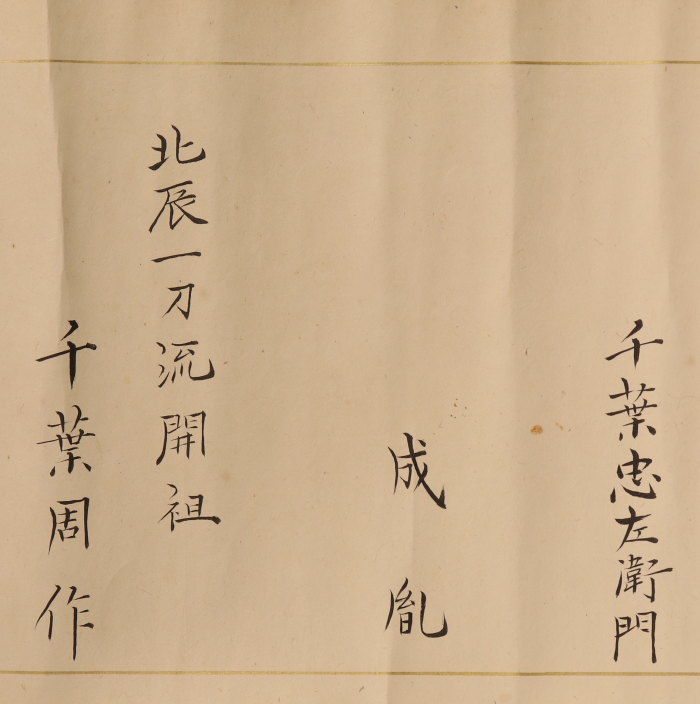 千葉忠左衛門
成胤
北辰一刀流開祖
千葉周作